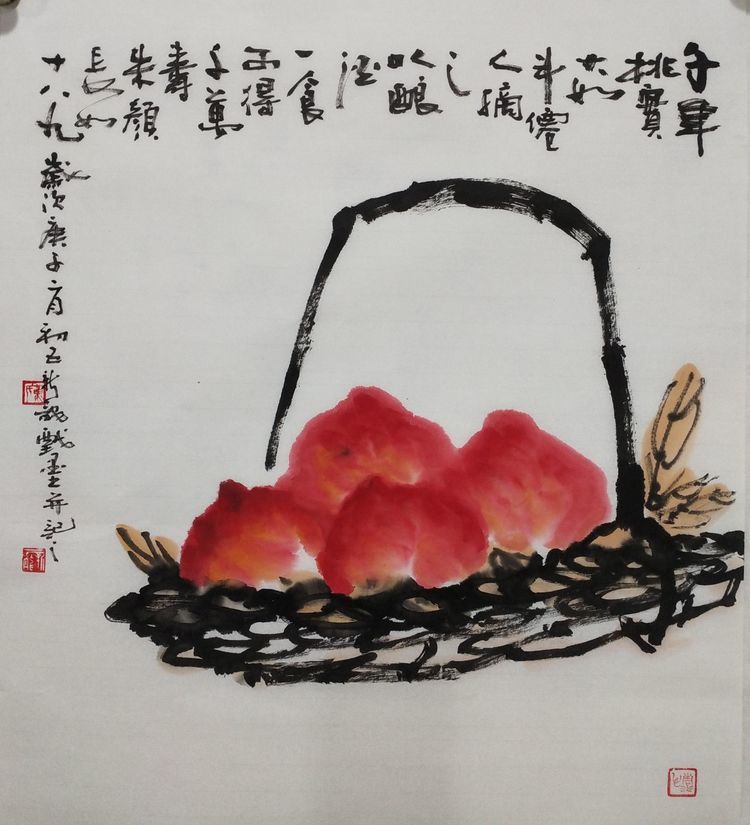 千年
桃實
大如
斗僊
人摘
之
以釀
酒
一食
可得
千萬
壽
朱顏
長如
十八九
歲次庚子二月初五戲墨并記之